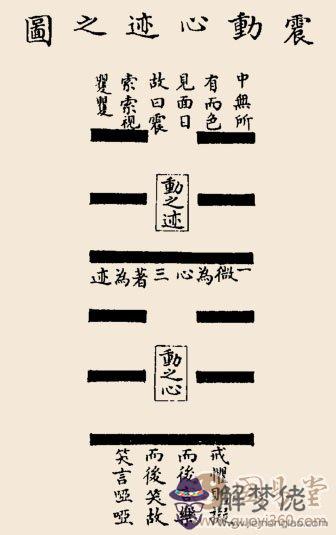 震動心迹之圖
中無所
有而色
見面日
故曰震
索索視
矍矍
動之迹
一微為心三著為迹
動之心
戒懼
而後樂
而後笑故
笑言啞啞
解梦佬